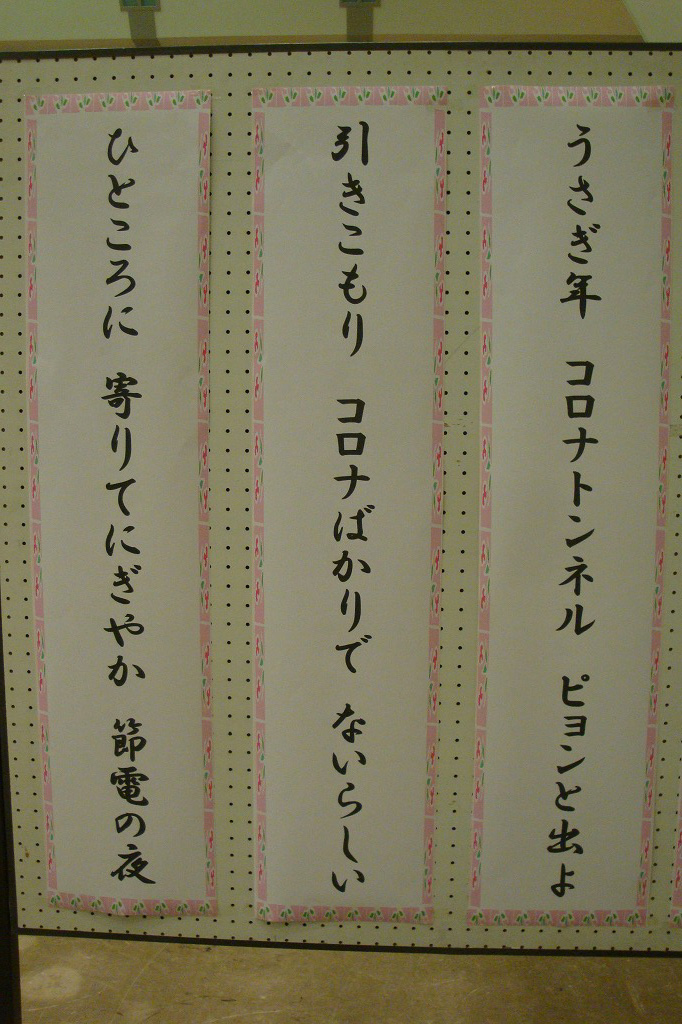 うさぎ年　コロナトンネル　ピョンと出よ
引きこもり　コロナばかりで　ないらしい
ひところに　寄りてにぎやか　節電の夜